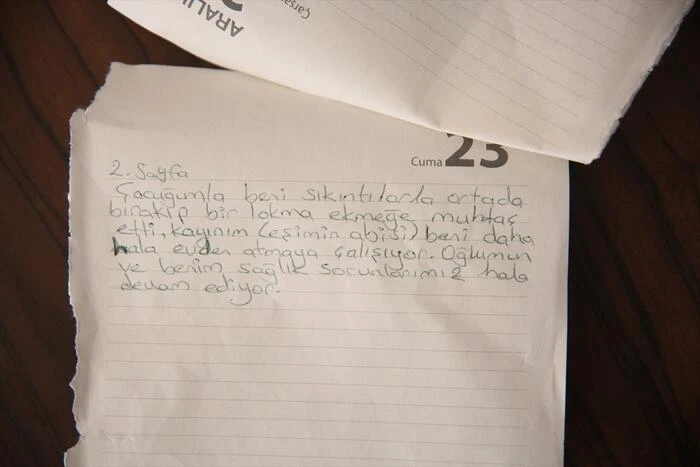 ARALI
Çarşa
Cuma 23
2. Sayfa
Çocuğumla beni sıkıntılarla ortada
bırakıp bir lokma ekmeğe muhtaç
etti, kayınım (eşimin abisi) beni daha
hala evden atmaya çalışıyor. Oğlumun
ve benim sağlık sorunlarımız hala
devam ediyor.